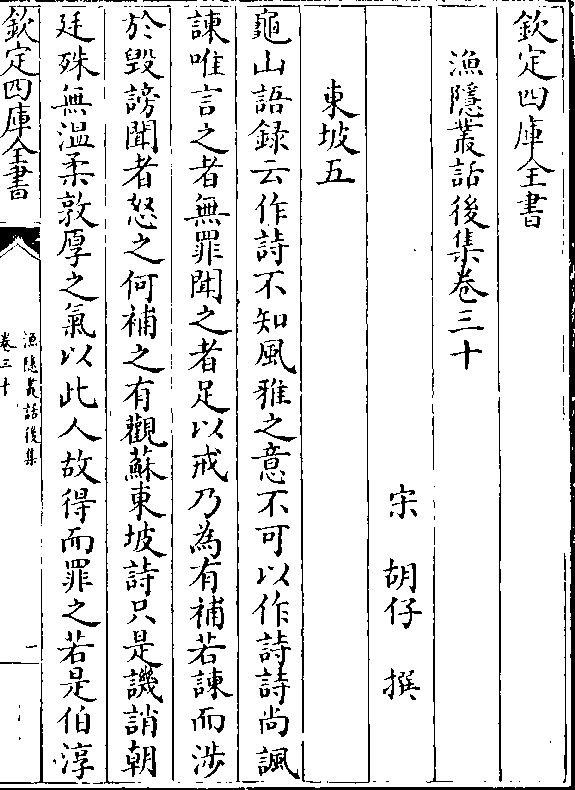 欽定四庫全書
漁隱叢話後集卷三十
宋 胡仔 撰
東坡五
龜山語録云作詩不知風雅之意不可以作詩詩尚諷
諫唯言之者無罪聞之者足以戒乃為有補若諫而涉
於毀謗聞者怒之何補之有觀蘇東坡詩只是譏誚朝
廷殊無温柔敦厚之氣以此人故得而罪之若是伯淳
欽定四庫全書
漁隱叢話後集
卷三十
一